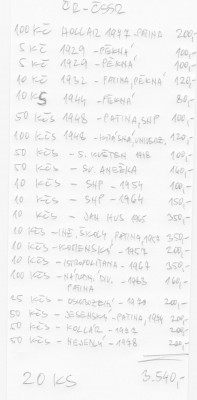 ČR - ČSSR
100 Kčs HOLLAR 1977 - PATINA 200,-
5 Kč 1929 - PĚKNÁ 100,-
5 Kč 1929 - PĚKNÁ 100,-
10 Kč 1932 - PATINA, PĚKNÁ 120,-
10 KS 1944 - PĚKNÁ 80,-
50 Kčs 1948 - PATINA, SNP 100,-
100 Kčs 1948 - 120,-
50 Kčs - 5. KVĚTEN 1948 100,-
50 Kčs - SV. ANEŽKA 160,-
10 Kčs - SNP - 1954 100,-
10 Kčs - SNP - 1964 150,-
10 Kčs - JAN HUS 1965 350,-
10 Kčs - PATINA, 1957 350,-
10 Kčs - KOMENSKÝ - 1957 200,-
10 Kčs - ISTROPOLITANA - 1967 350,-
100 Kčs - NÁROD. DIV. - 1983 160,-
PATINA
Kčs - OSVOBOZENÍ - 200,-
50 Kčs - JESENSKÁ - PATINA, 200,-
50 Kčs - KOLLÁR - 1977 200,-
50 Kčs - NEJEDLÝ - 1978 200,-
20 KS 3.540,-